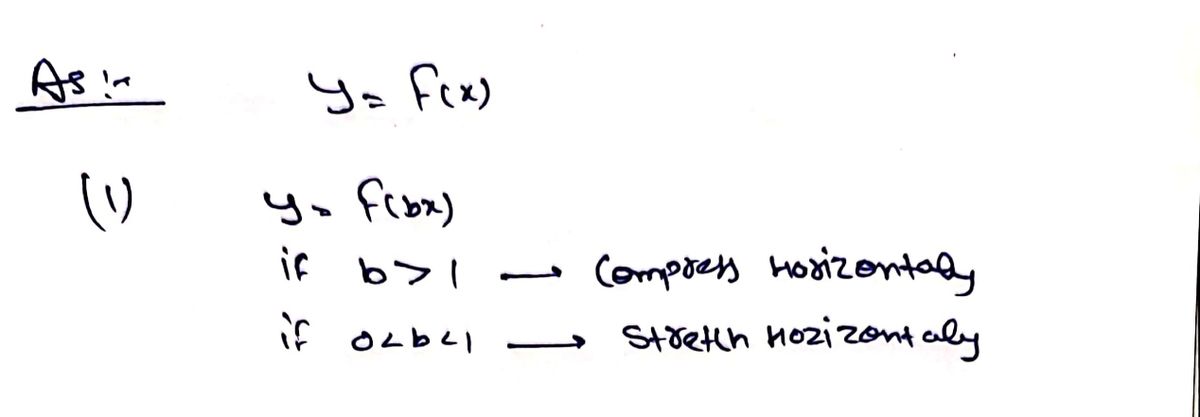 As :-
y = f(x)
(1) y = f(bx)
if b > 1 → Compress Horizontaly
if 0 < b < 1 → Stretch Horizontaly